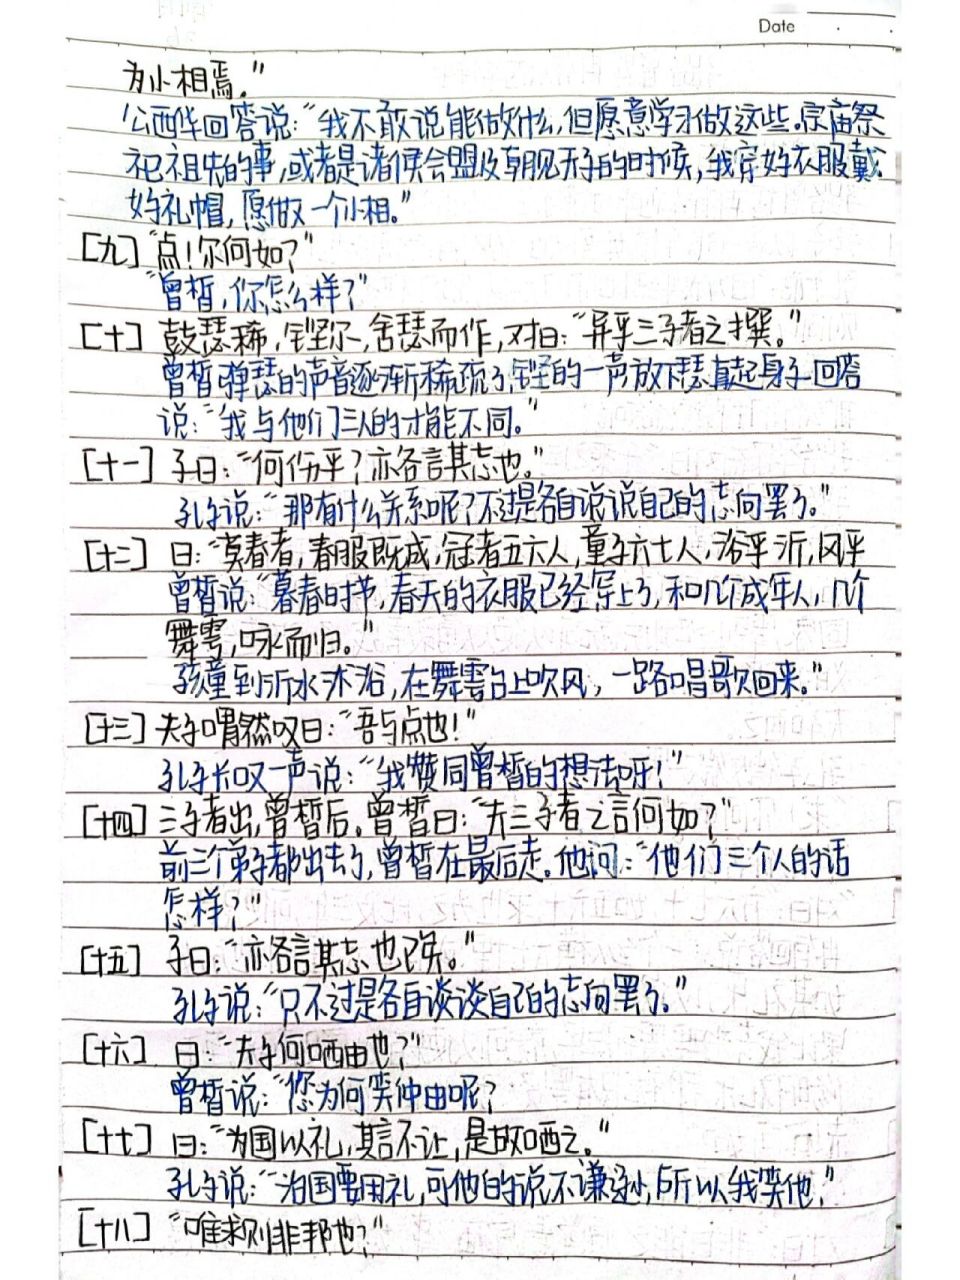 Date
为小相焉。"
公西华回答说:"我不敢说能做什么,但愿意学习做这些。宗庙祭
祀祖先的事,或者是诸侯会盟及朝见天子的时候,我穿好衣服戴
好礼帽,愿做一个小相。"
[九]"点!尔何如?"
"曾皙,你怎么样?"
[十] 鼓瑟稀,铿尔,舍瑟而作,对曰:"异乎三子者之撰。"
曾皙弹瑟的声音逐渐稀疏了,铿的一声放下瑟直起身子回答
说:"我与他们三人的才能不同。"
[十一] 子曰:"何伤乎?亦各言其志也。"
孔子说:"那有什么关系呢?不过是各自说说自己的志向罢了。"
[十二] 曰:"莫春者,春服既成,冠者五六人,童子六七人,浴乎沂,风乎
曾皙说:"暮春时节,春天的衣服已经穿上了,和几个成年人,几个
舞雩,咏而归。"
孩童到沂水沐浴,在舞雩台上吹风,一路唱歌回来。"
[十三] 夫子喟然叹曰:"吾与点也!"
孔子长叹一声说:"我赞同曾皙的想法呀!"
[十四] 三子者出,曾皙后。曾皙曰:"夫三子者之言何如?"
前三个弟子都出去了,曾皙在最后走。他问:"他们三个人的话
怎样?"
[十五] 子曰:"亦各言其志也已矣。"
孔子说:"只不过是各自谈谈自己的志向罢了。"
[十六] 曰:"夫子何哂由也?"
曾皙说:"您为何笑仲由呢?
[十七] 曰:"为国以礼,其言不让,是故哂之。"
孔子说:"治国要用礼,可他的说不谦逊,所以我笑他,"
[十八] "唯求则非邦也?"